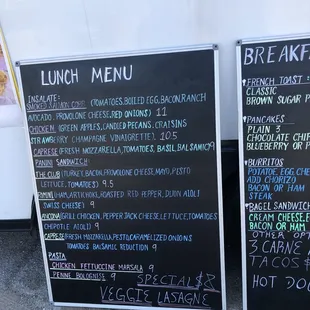 LUNCH MENU
INSALATE:
SMOKED SALMON COBB (TOMATOES, BOILED EGG, BACON, RANCH
AVOCADO, PROVOLONE CHEESE, RED ONIONS) 11
CHICKEN (GREEN APPLES, CANDIED PECANS, CRAISINS
STRAWBERRY CHAMPAGNE VINAIGRETTE) 10.5
CAPRESE (FRESH MOZZARELLA, TOMATOES, BASIL, BALSAMIC) 9
PANINI SANDWICH:
THE CLUB (TURKEY, BACON, PROVOLONE CHEESE, MAYO, PESTO
LETTUCE, TOMATOES) 9.5
RIMINI (HAM, ARTICHOKE, ROASTED RED PEPPER, DIJON AIOLI
SWISS CHEESE) 9
ANCONA (GRILL CHICKEN, PEPPER JACK CHEESE, LETTUCE, TOMATOES
CHIPOTLE AIOLI) 9
CAPRESE (FRESH MOZZARELLA, PESTO, CARAMELIZED ONIONS
TOMATOES BALSAMIC REDUCTION 9
PASTA
CHICKEN FETTUCCINE MARSALA 9
PENNE BOLOGNESE 9
SPECIAL $8
VEGGIE LASAGNE
BREAKF
FRENCH TOAST
CLASSIC
BROWN SUGAR
PANCAKES
PLAIN 3
CHOCOLATE CHIP
BLUEBERRY OR
BURRITOS
POTATOE, EGG, CHE
ADD CHORIZO
BACON OR HAM
STEAK
BAGEL SANDWICH
CREAM CHEESE,
BACON OR HAM
OTHER OPT
3 CARNE
TACOS
HOT DO